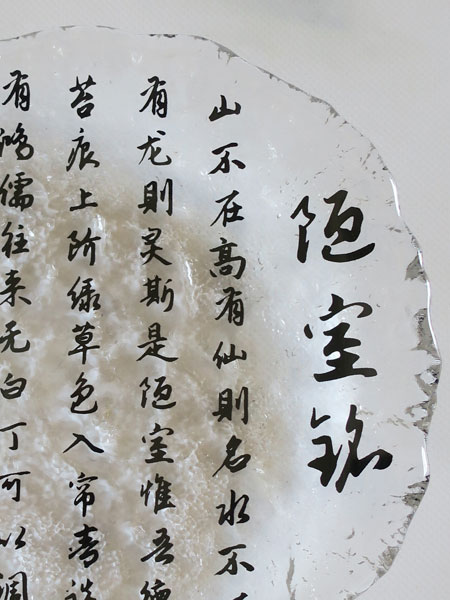 陋室铭
山不在高有仙則名水不
有龙則灵斯是陋室惟吾德
苔痕上阶绿草色入帘青谈
有鸿儒往来无白丁可以调